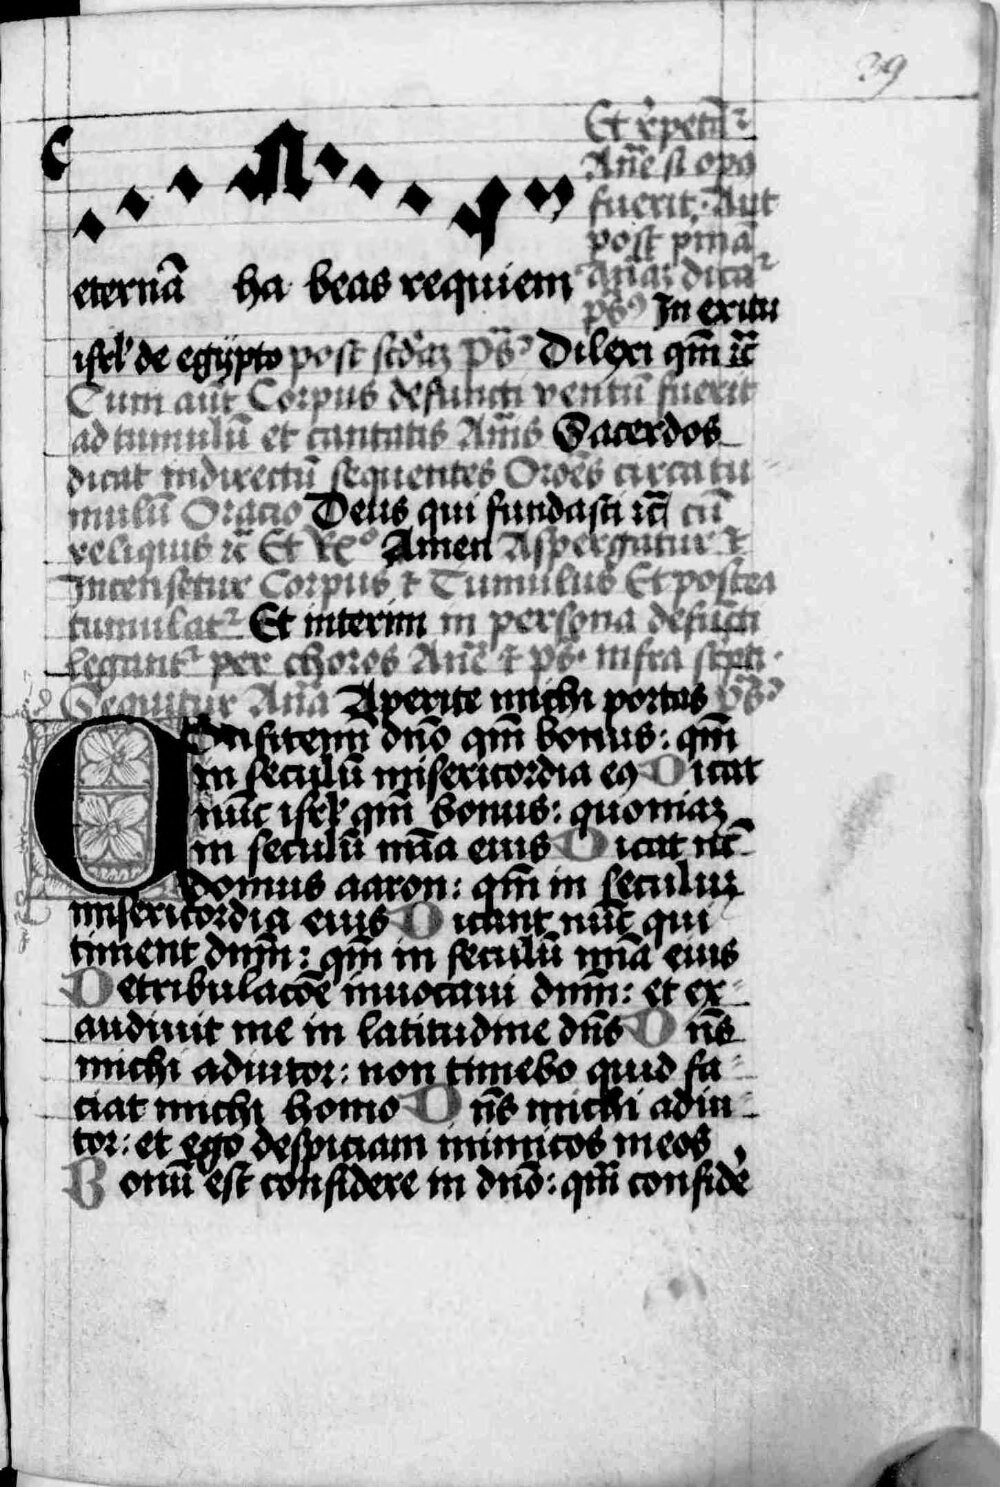 39
Et rͣpetūͬ
Añe si op9
fuerit. Aut
post pͥmā
Añaz dicaͬ
ps9 In exitu
eternā ha beas requiem
isrl̓ de egipto post scd̓az p̄s9 Dilexi qm̄ ꝛc̄
Cum aūt Corpus defuncti ventū fuerit
ad tumulū et cantatis Añis Sacerdos
dicat indirectū sequentes Or̄oēs circa tu
mulū Oracio Deus qui fundasti ꝛc̄ cū
reliquis ꝛc̄ Et Rx̊ Amen Aspergatur ⁊
Incensetur Corpus ⁊ Tumulus Et postea
tumulatͬ Et interim in persona defūcti
leguntͬ per choros Añe ⁊ ps. infra scp̄ti.
Sequitur Aña Aperite michi portas p̄s9
COnfitemi dn̄o qm̄ bonus: qm̄
in seculū misericordia ei9 Dicat
nūc isrl̓ qm̄ bonus: quoniaz
in seculū mīa eius Dicat nc̄
domus aaron: qm̄ in seculuz
misericordia eius Dicant nūc qui
timent dn̄m: qm̄ in seculū mīa eius
De tribulacōe inuocaui dn̄m: et ex-
audiuit me in latitudine dn̄s Dn̄s
michi adiutor: non timebo quid fa-
ciat michi homo Dn̄s michi adiu-
tor: et ego despiciam inimicos meos
Bonū est confidere in dn̄o: qm̄ confide